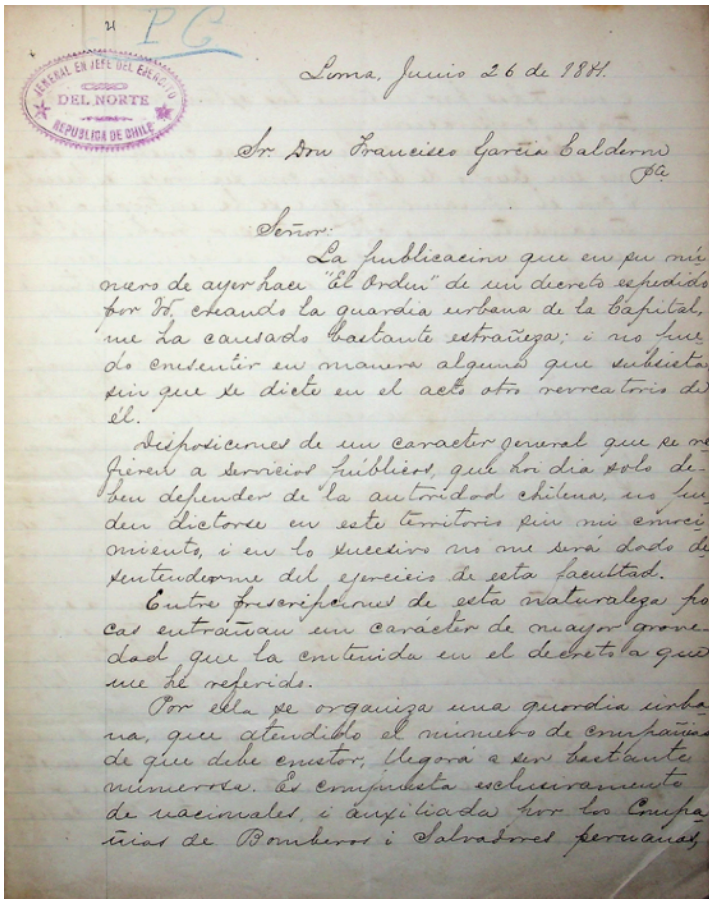 21 P C
JENERAL EN JEFE DEL EJERCITO
DEL NORTE
REPUBLICA DE CHILE
Lima, Junio 26 de 1881.
Sr. Don Francisco García Calderon
Pte
Señor:
La publicacion que en su nú-
mero de ayer hace "El Orden" de un decreto espedido
por Vd. creando la guardia urbana de la Capital,
me ha causado bastante estrañeza; i no pue-
do consentir en manera alguna que subsista,
sin que se dicte en el acto otro revocatorio de
él.
Disposiciones de un caracter jeneral que se re-
fieren a servicios públicos, que hoi dia solo de-
ben depender de la autoridad chilena, no pue-
den dictarse en este territorio sin mi conoci-
miento, i en lo sucesivo no me será dado de-
sentenderme del ejercicio de esta facultad.
Entre prescripciones de esta naturaleza po-
cas entrañan un carácter de mayor grave-
dad que la contenida en el decreto a que
me he referido.
Por ella se organiza una guardia urba-
na, que atendido el número de compañias
de que debe constar, llegará a ser bastante
numerosa. Es compuesta esclusivamente
de nacionales, i auxiliada por las Compa-
ñias de Bomberos i Salvadores peruanas,